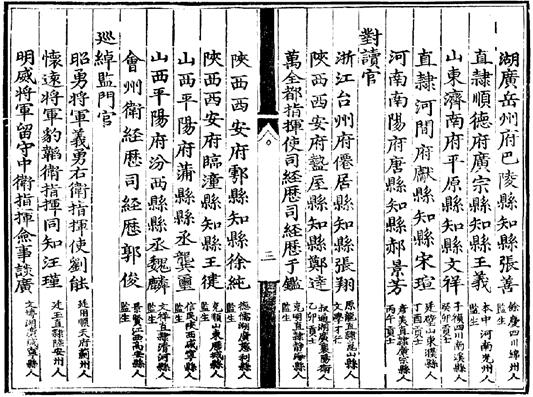 湖廣岳州府巴陵縣知縣張善 餘慶四川綿州人 監生
直隸順德府廣宗縣知縣王義 本中河南光州人 監生
山東濟南府平原縣知縣文祥 四川南溪縣人 癸卯貢士
直隸河間府獻縣知縣宋瑄 廷璧山東濮縣人 丁酉貢士
河南南陽府唐縣知縣郝景芳 彥美直隸廣宗縣人 丙午貢士
對讀官
浙江台州府僊居縣知縣張翔 原龍直隸崑山縣人 文學才行
陝西西安府盩厔縣知縣鄭達 叔通湖廣襄陽衛人 乙卯貢士
萬全都指揮使司經歷司經歷于鑑 克明直隸靜海縣人 監生
三
陝西西安府鄠縣知縣徐純 湖廣慈利縣人 監生
陝西西安府臨潼縣知縣王倢 克順山東歷城縣人 監生
山西平陽府蒲縣縣丞龔璽 信民陝西咸寧縣人 監生
山西平陽府汾西縣縣丞魏麟 文祥直隸清河縣人 監生
會州衛經歷司經歷郭俊 景賢江西高安縣人 監生
巡綽監門官
昭勇將軍義勇右衛指揮使劉能 廷用順天府薊州人
懷遠將軍豹韜衛指揮同知汪瑾 廷玉直隸陸安州人
明威將軍留守中衛指揮僉事談廣 文博湖廣咸寧縣人